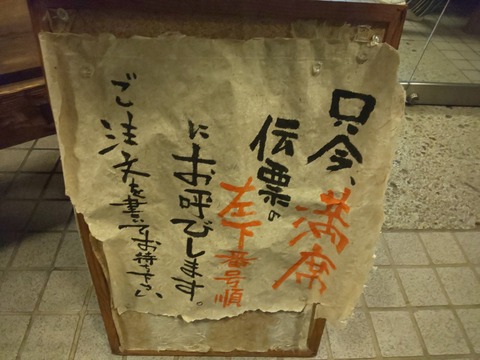 只今、満席
伝票の
左下番号順
にお呼びします。
ご注文を書いてお待ち下さい